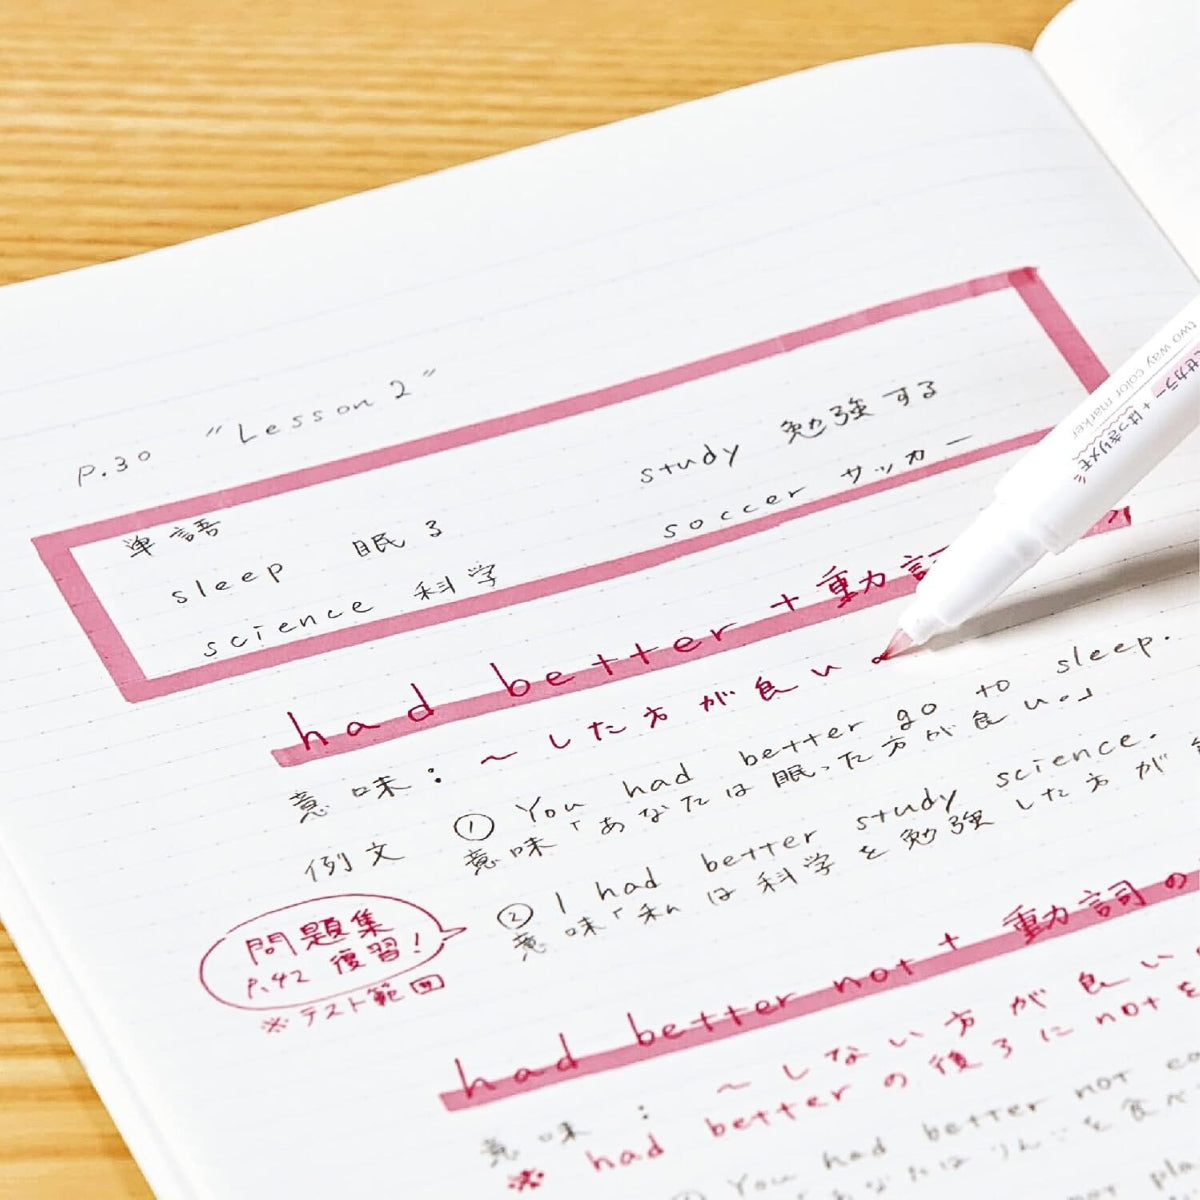 P.30 "Lesson 2"
単語
sleep 眠る study 勉強する
science 科学 soccer サッカー
had better + 動詞
意味：〜した方が良い
例文 ① You had better go to sleep.
意味「あなたは眠った方が良い。」
② I had better study science.
意味「私は科学を勉強した方が
問題集
P.42 復習!
※テスト範囲
had better not + 動詞の
意味：〜しない方が良い
※ had better の後ろに not を
You had better not
あなたはりんごを食べ
two way color marker
せカラー + はっきりメモ